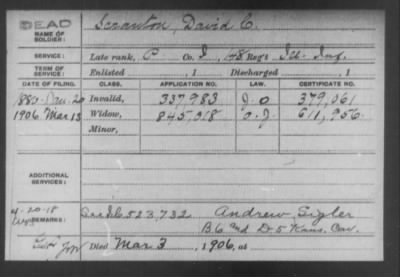 DEAD
NAME OF SOLDIER: Scranton, David C.
SERVICE: Late rank, P Co. I, 48 Reg't Ill. Inf.
TERM OF SERVICE: Enlisted , 1 Discharged , 1
DATE OF FILING. CLASS. APPLICATION NO. LAW. CERTIFICATE NO.
1880 Jan. 20 Invalid, 337,983 379,061
1906 Mar 13 Widow, 845,018 611,956
Minor,
ADDITIONAL SERVICES:
4-20-18 REMARKS: 523,732 Andrew Sigler
B. 6 Md D. 5 Kans. Cav.
Died Mar 3 , 1906, at